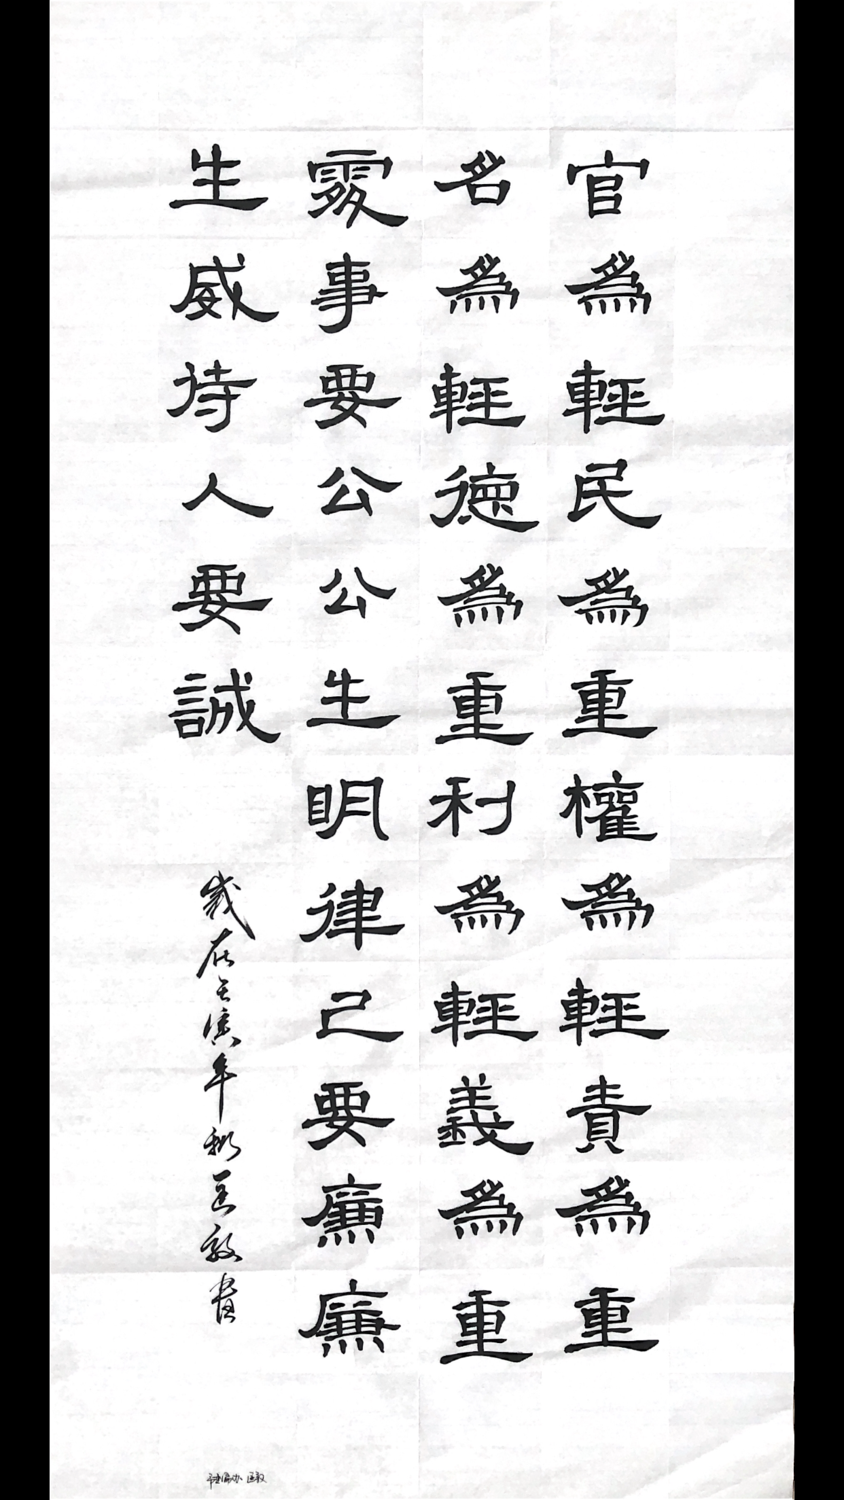 官為輕民為重權為輕責為重
名為輕德為重利為輕義為重
處事要公公生明律己要廉廉
生威待人要誠
歲在壬寅年秋 敬書